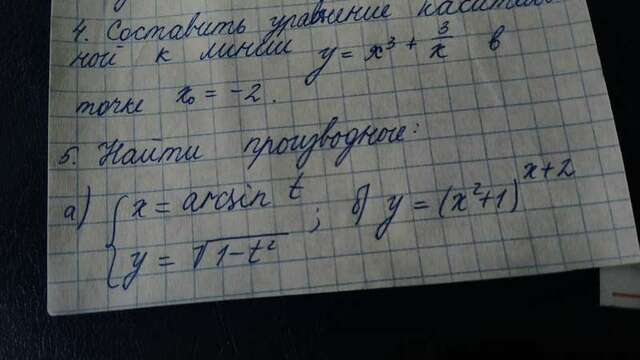 4. Составить уравнение
ной к линии y = x³ + 3/x в
точке x₀ = -2.
5. Найти производное:
а) { x = arcsin t ; б) y = (x²+1)^(x+2)
y = √(1-t²)